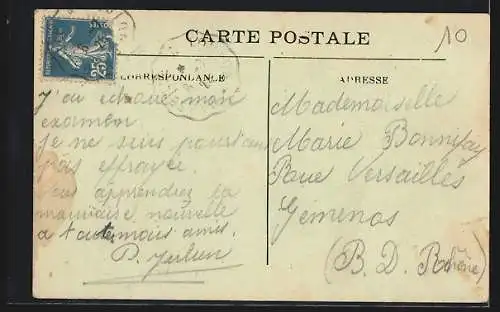 CARTE POSTALE
10
25c
CORRESPONDANCE
ADRESSE
J'ai échoué mon
examen
je ne suis pourtant
pas effrayée
apprendrez la
mauvaise nouvelle
a
amies.
P. Julien
Mademoiselle
Marie Bonnifay
Rue Versailles
Gemenos
(B. D. Rhône)